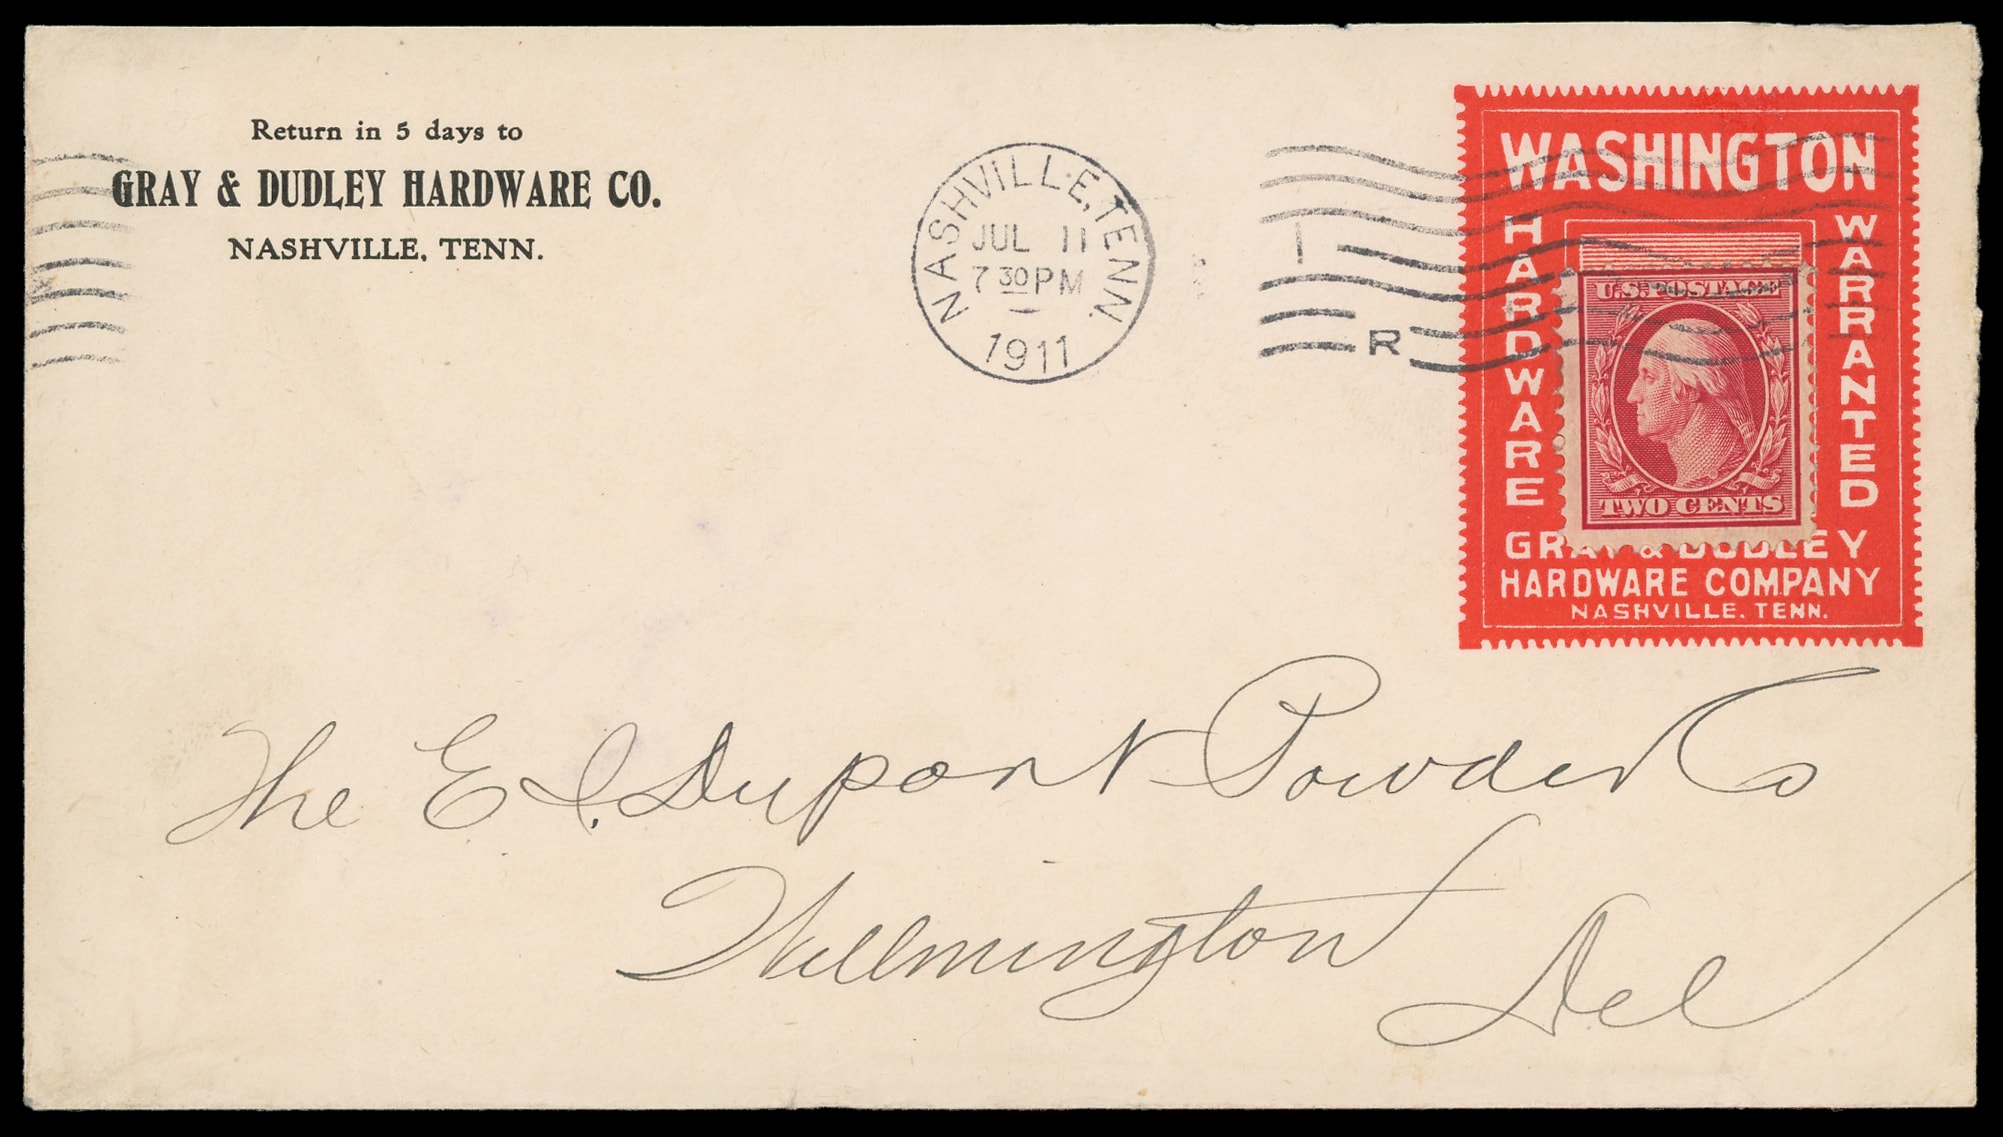 Return in 5 days to
GRAY & DUDLEY HARDWARE CO.
NASHVILLE, TENN.
NASHVILLE, TENN.
JUL 11
7 30 PM
1911
1
R
WASHINGTON
HARDWARE
WARRANTED
U.S. POSTAGE
TWO CENTS
GRAY & DUDLEY
HARDWARE COMPANY
NASHVILLE, TENN.
The E I. Dupont Powder Co
Willmington Del